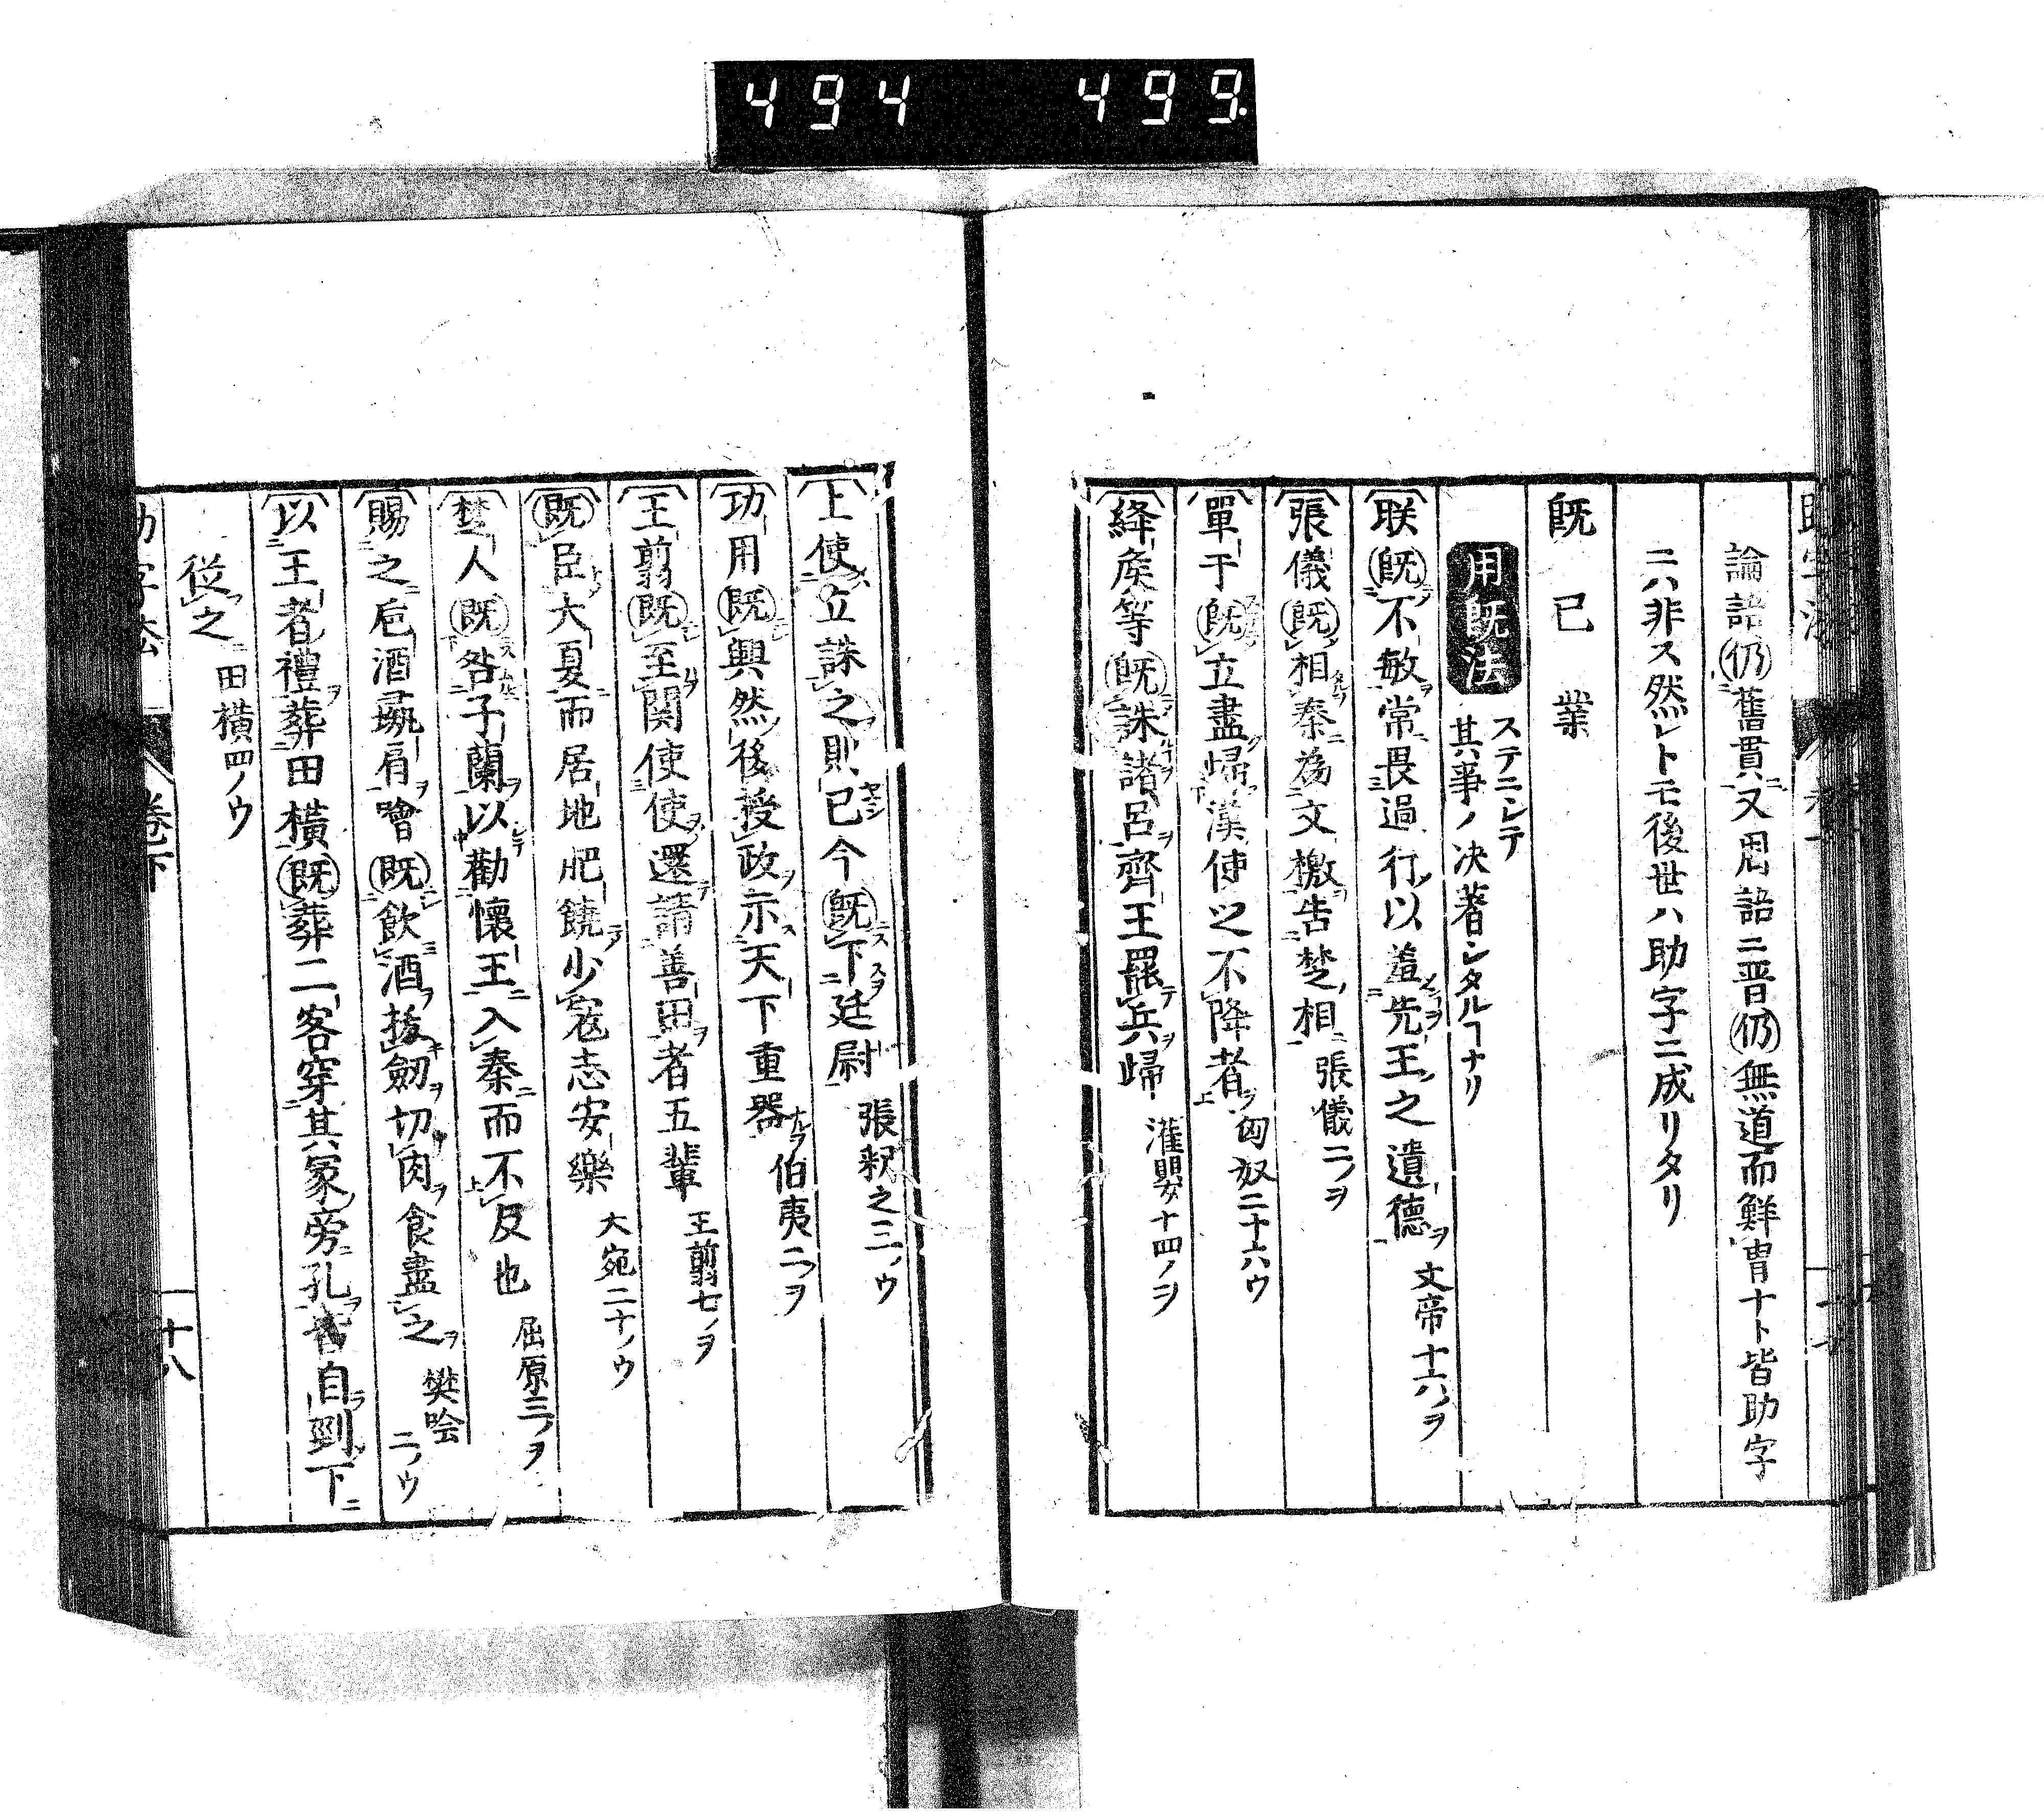 494 499.
論語仍舊貫又周語ニ晋仍無道而鮮冑十ト皆助字
ニハ非ス然レトモ後世ハ助字ニ成リタリ
既 已 業
用既法 ステニシテ
其事ノ决著シタルヿナリ
朕既不敏常畏過行以羞先王之遺德 文帝十六ノヲ
張儀既相秦為文檄告楚相 張儀二ノヲ
單于既立盡歸漢使之不降者 匈奴二十六ウ
絳矦等既誅諸呂齊王罷兵歸 灌嬰十四ノヲ
上使立誅之則已今既下廷尉 張釈之三ノウ
功用既興然後授政示天下重器 伯夷二ノヲ
王翦既至関使使還請善田者五輩 王翦七ノヲ
既臣大夏而居地肥饒少寇志安樂 大宛二十ノウ
楚人既咎子蘭以勸懷王入秦而不反也 屈原三ノヲ
賜之巵酒彘肩噲既飲酒拔劒切肉食盡之 樊噲二ノウ
以王者禮葬田橫既葬二客穿其冢旁孔皆自剄下
從之 田橫四ノウ
卷下
十八